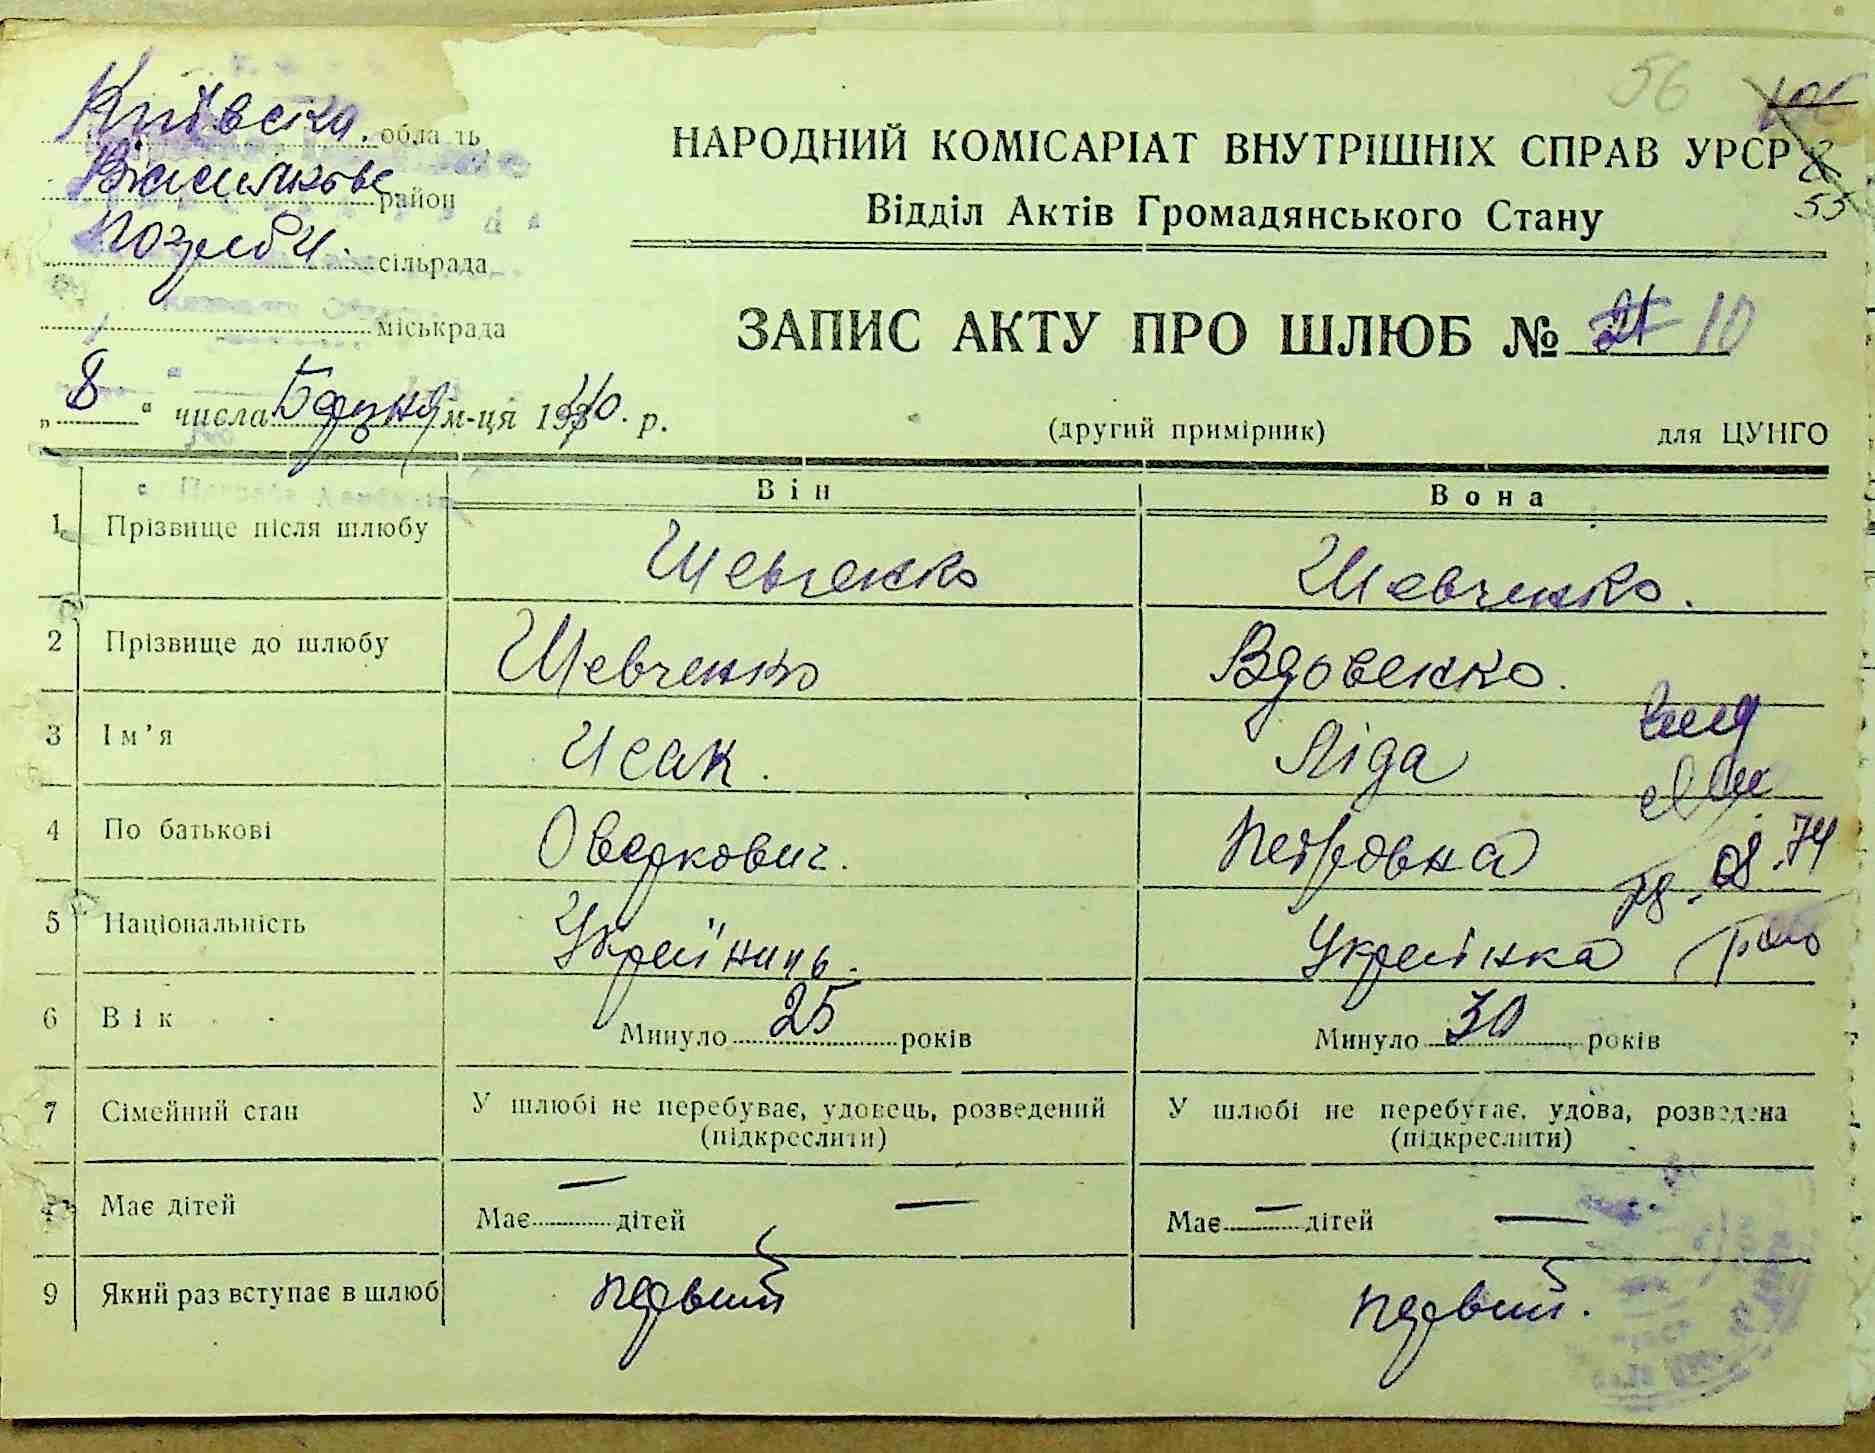 56
Київська область
район
сільрада
міськрада
НАРОДНИЙ КОМІСАРІАТ ВНУТРІШНІХ СПРАВ УРСР
55
Відділ Актів Громадянського Стану
ЗАПИС АКТУ ПРО ШЛЮБ № 21 10
„ 8 “ числа м-ця 1940. р.
(другий примірник) для ЦУНГО
Він Вона
1 Прізвище після шлюбу Шевченко Шевченко.
2 Прізвище до шлюбу Шевченко Вдовенко.
3 Ім'я Исак. Ліда
4 По батькові Оверкович. Петровна
08.74
5 Національність Україниць. Українка
6 Вік Минуло 25 років Минуло 30 років
7 Сімейний стан У шлюбі не перебуває, удовець, розведений У шлюбі не перебуває, удова, розведена
(підкреслити) (підкреслити)
Має дітей Має — дітей — Має — дітей —
9 Який раз вступає в шлюб первий первий.